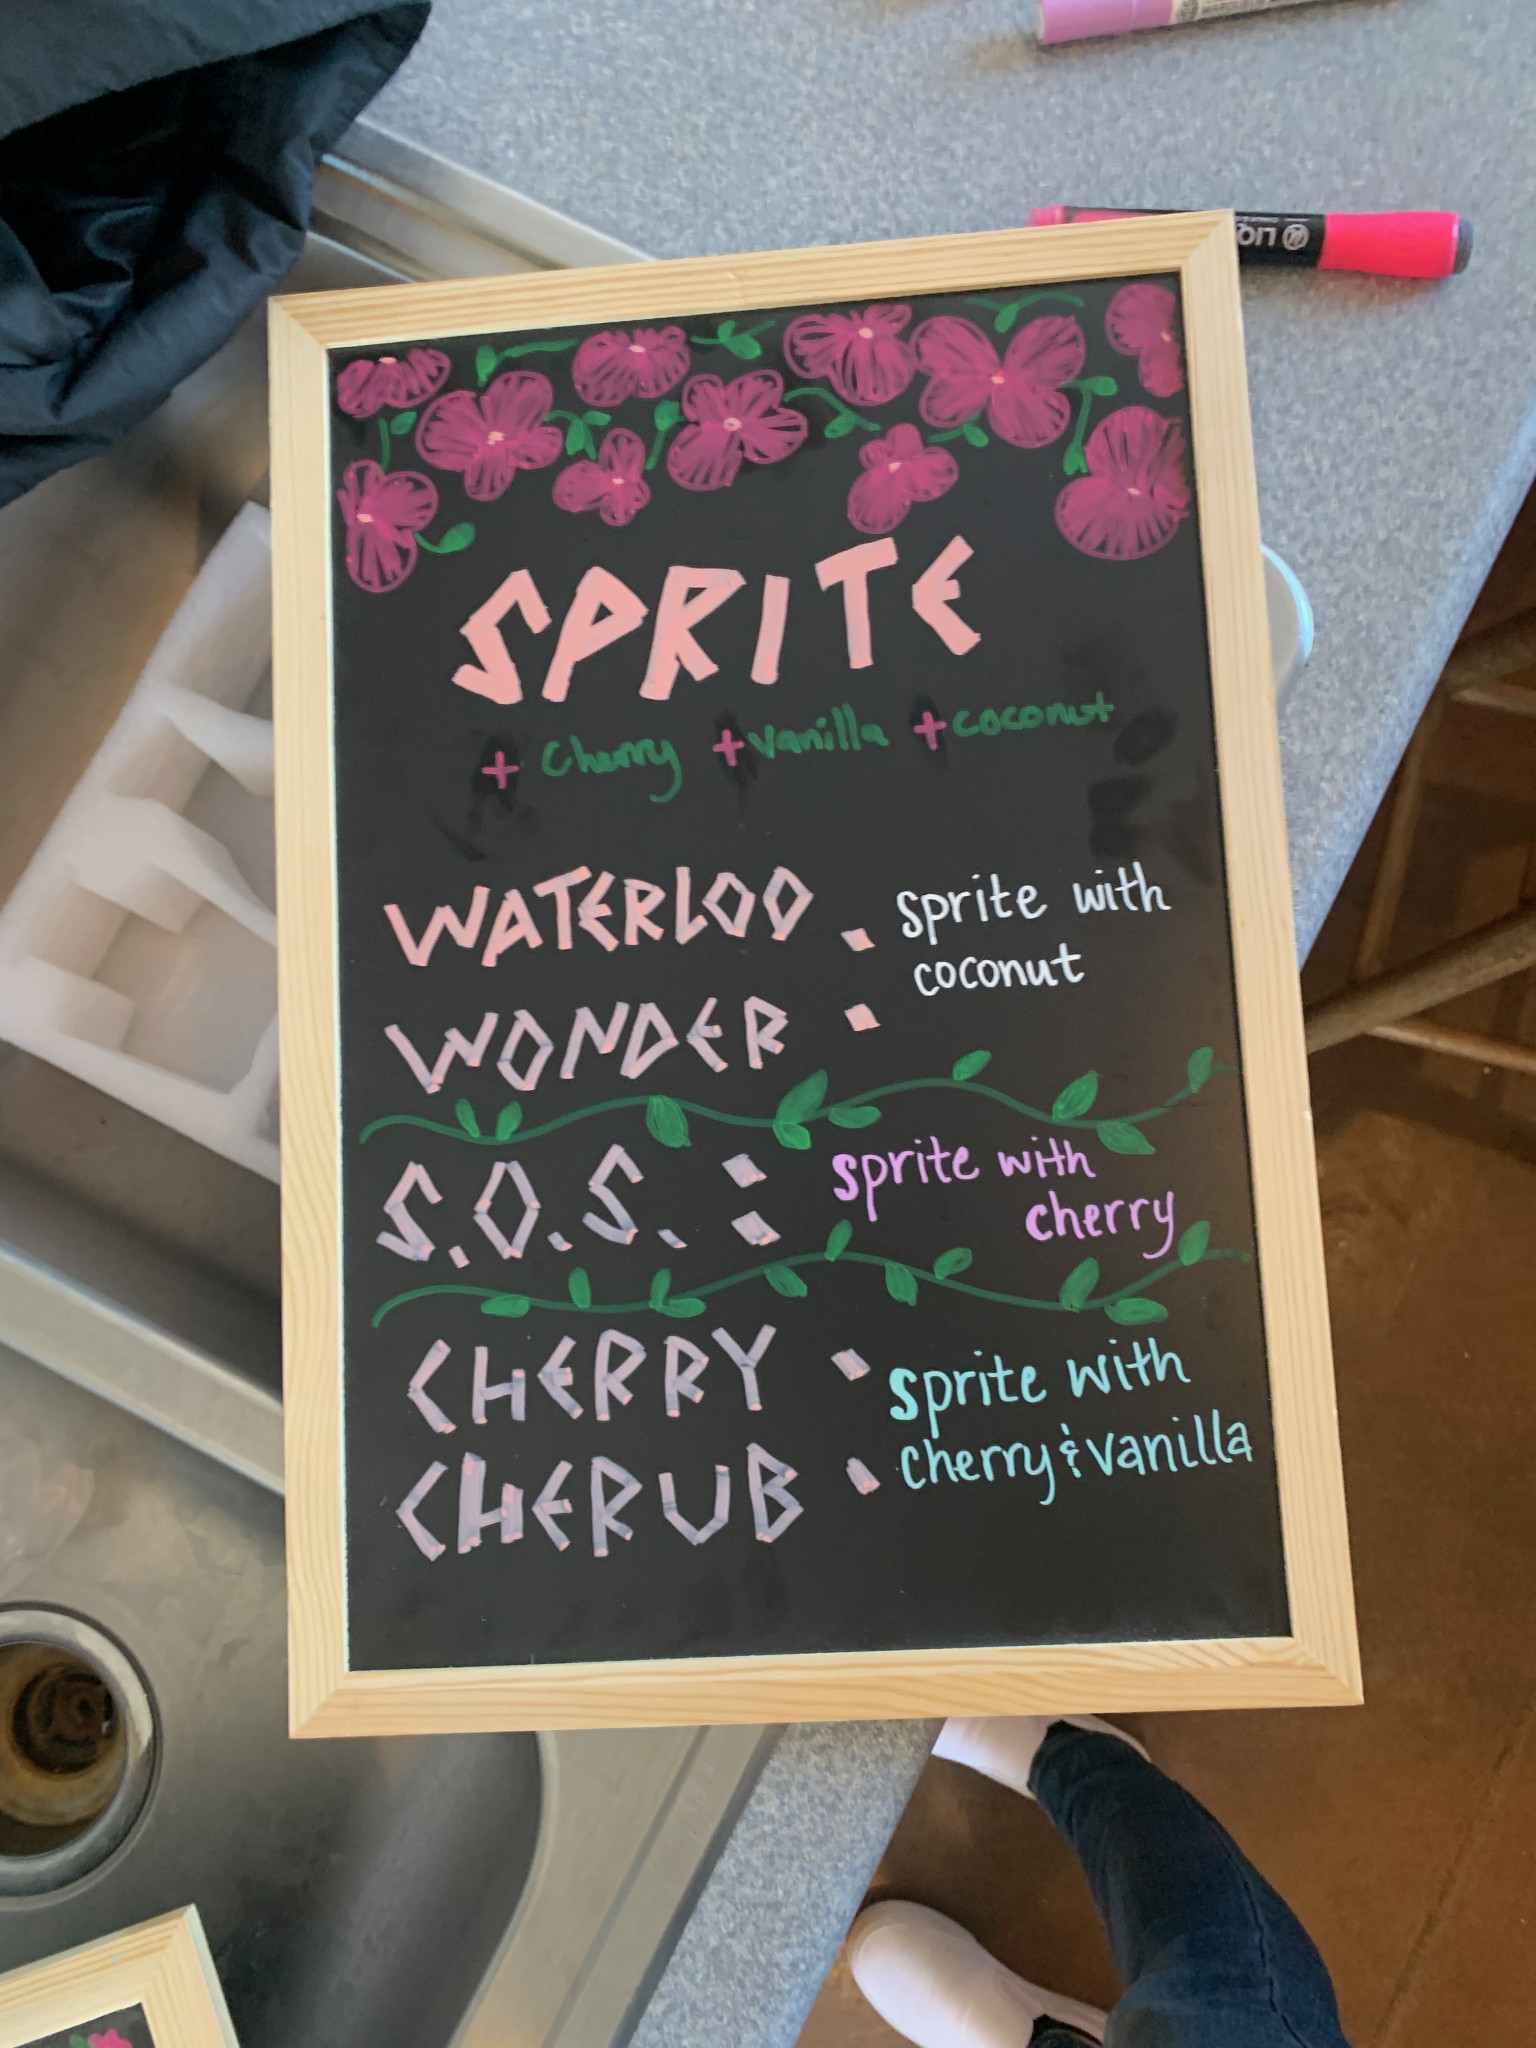 SPRITE
+ Cherry + vanilla + coconut
WATERLOO
WONDER : sprite with
coconut
S.O.S. : sprite with
cherry
CHERRY
CHERUB : sprite with
cherry & vanilla
LIQ